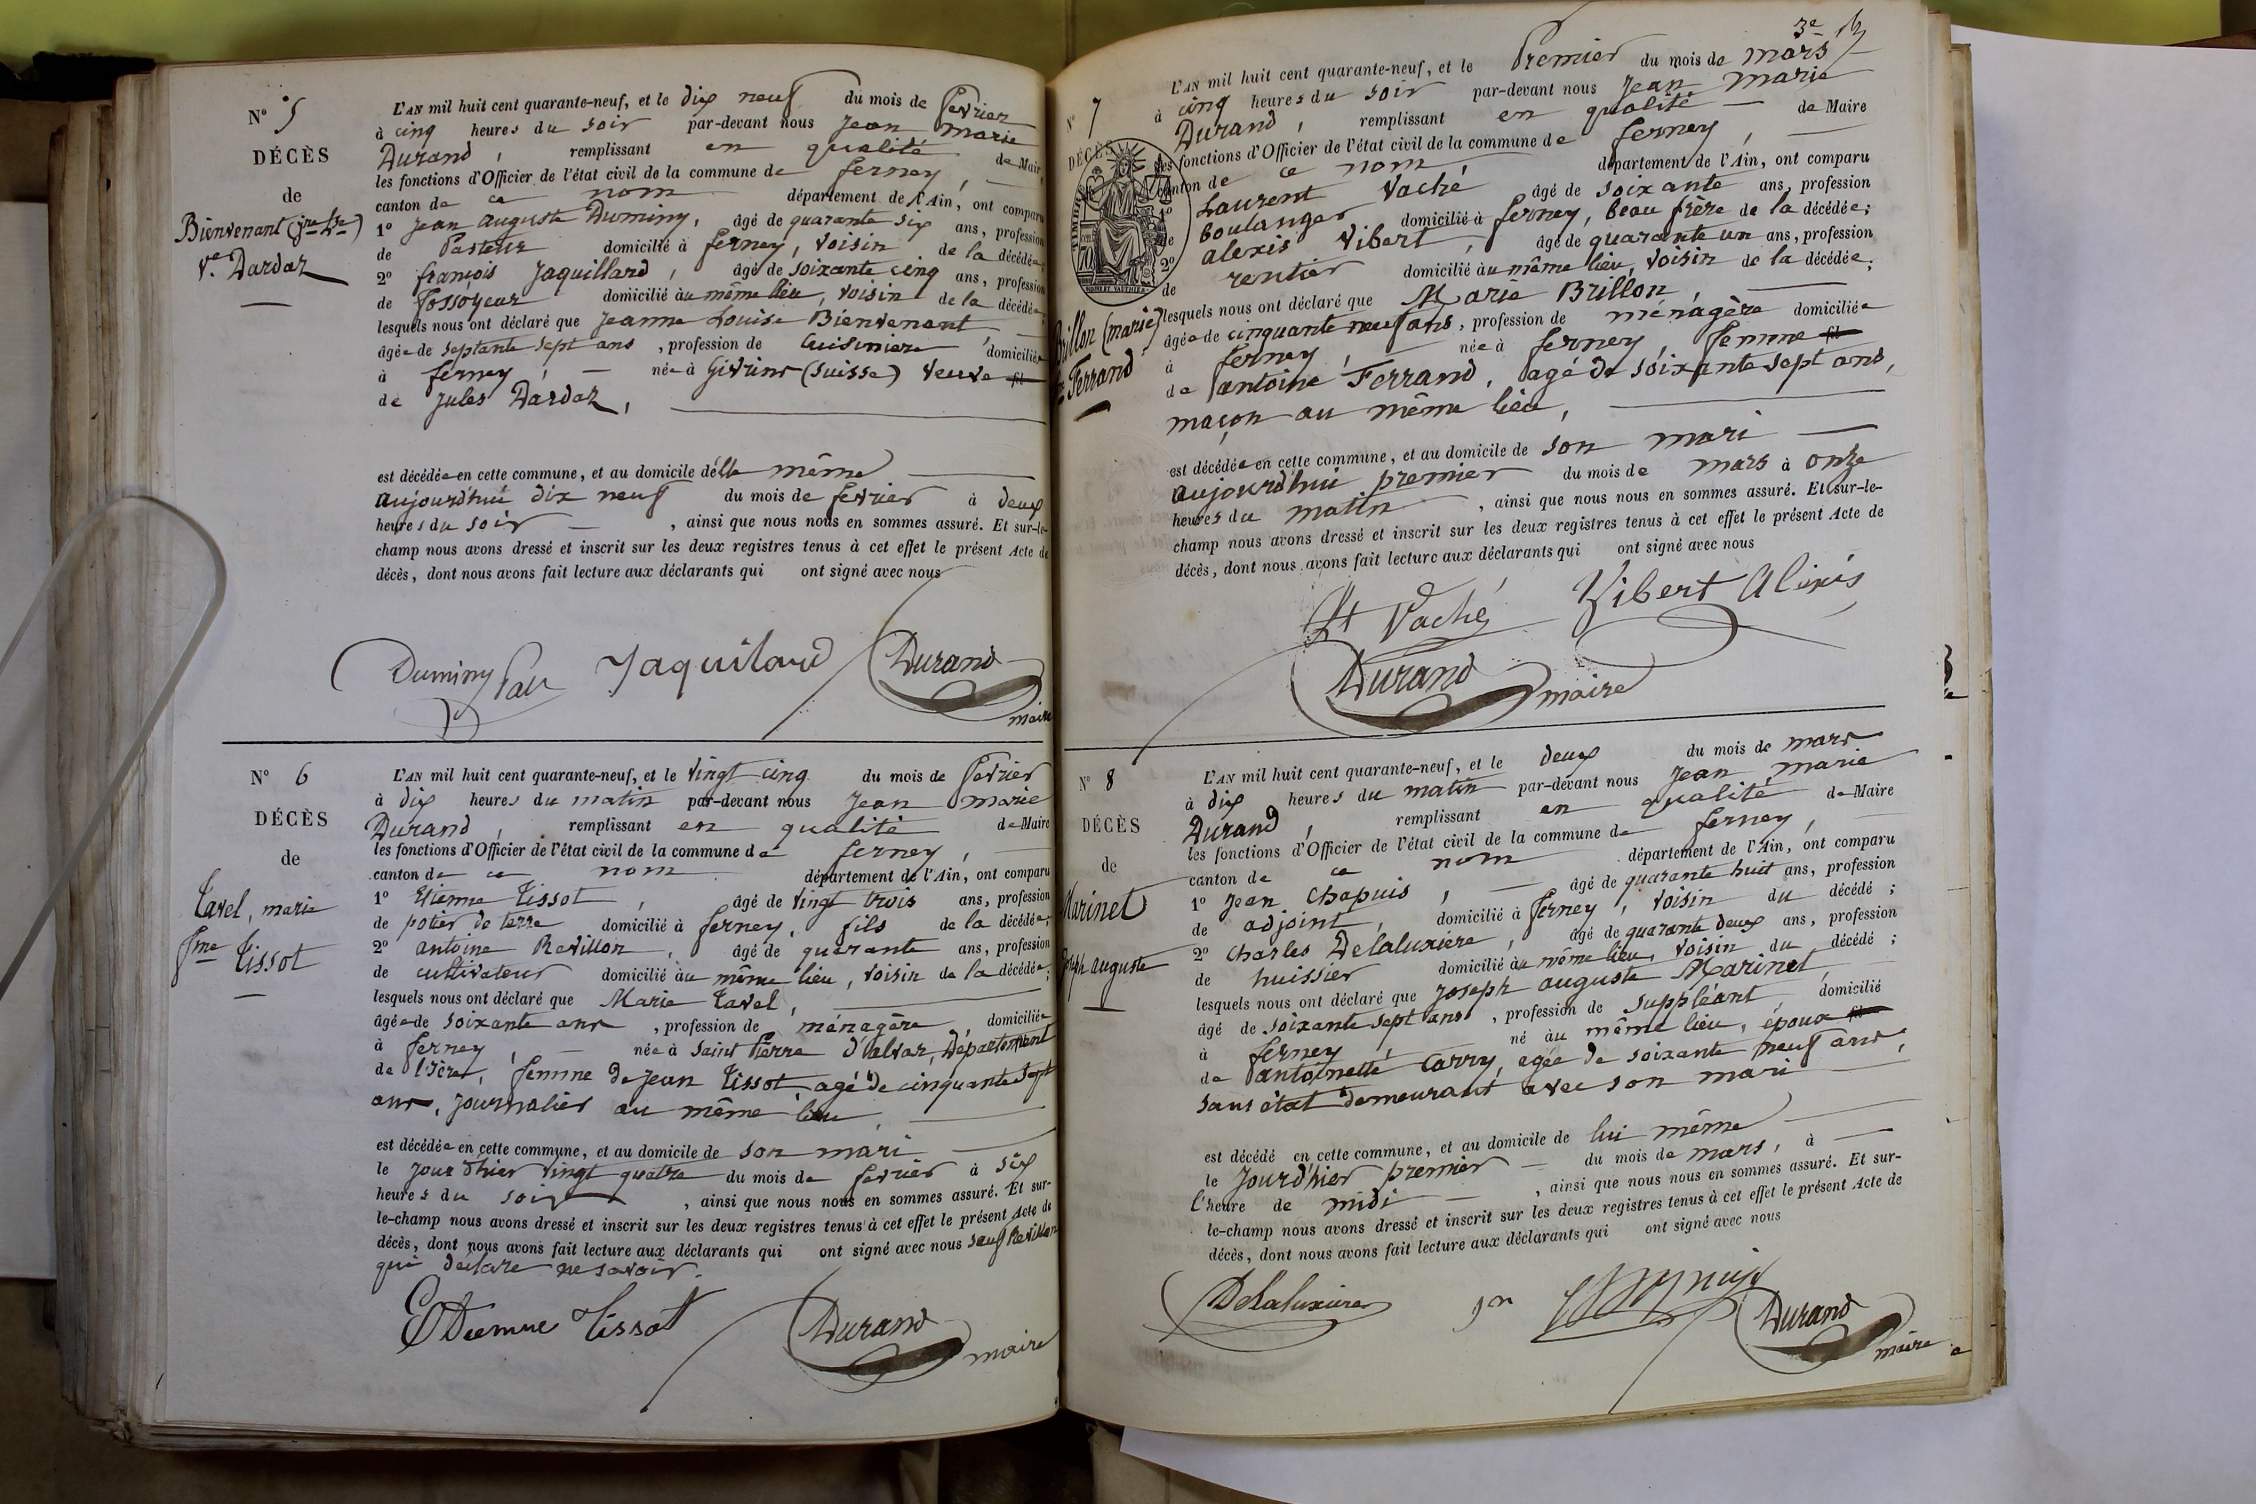 N° 5
DÉCÈS
de
Bienvenant (jne Lse)
Ve. Dardaz
L'AN mil huit cent quarante-neuf, et le dix neuf du mois de fevrier
à cinq heures du soir par-devant nous Jean Marie
Durand, remplissant en qualité de Maire
les fonctions d'Officier de l'état civil de la commune de ferney,
canton de ce nom département de l'Ain, ont comparu
1° Jean auguste Duminy, âgé de quarante six ans, profession
de Pasteur domicilié à ferney, voisin de la décédée;
2° françois Jaquillard, âgé de soixante cinq ans, profession
de fossoyeur domicilié au même lieu, voisin de la décédée;
lesquels nous ont déclaré que Jeanne Louise Bienvenant
âgée de septante sept ans, profession de Cuisiniere domiciliée
à ferney, née à Givrins (suisse) veuve fil
de Jules Dardaz,
est décédée en cette commune, et au domicile d'elle même
aujourd'hui dix neuf du mois de fevrier à deux
heures du soir, ainsi que nous nous en sommes assuré. Et sur-le-
champ nous avons dressé et inscrit sur les deux registres tenus à cet effet le présent Acte de
décès, dont nous avons fait lecture aux déclarants qui ont signé avec nous
Duminy Jaquilard Durand
maire
N° 6
DÉCÈS
de
Tavel, marie
fme Tissot
L'AN mil huit cent quarante-neuf, et le vingt cinq du mois de fevrier
à dix heures du matin par-devant nous Jean Marie
Durand, remplissant en qualité de Maire
les fonctions d'Officier de l'état civil de la commune de ferney,
canton de ce nom département de l'Ain, ont comparu
1° Etienne Tissot, âgé de vingt trois ans, profession
de potier de terre domicilié à ferney, fils de la décédée;
2° antoine Revillon, âgé de quarante ans, profession
de cultivateur domicilié au même lieu, voisin de la décédée;
lesquels nous ont déclaré que Marie Tavel,
âgée de soixante ans, profession de ménagère, domiciliée
à ferney, née à saint Pierre d'alvar, Département
de l'isère, femme de Jean Tissot, agé de cinquante sept
ans, journalier au même lieu,
est décédée en cette commune, et au domicile de son mari
le jour d'hier vingt quatre du mois de fevrier à six
heures du soir, ainsi que nous nous en sommes assuré. Et sur-
le-champ nous avons dressé et inscrit sur les deux registres tenus à cet effet le présent Acte de
décès, dont nous avons fait lecture aux déclarants qui ont signé avec nous sauf Revillon
qui déclare ne savoir.
Etienne Tissot Durand
maire
3e
N° 7
DÉCÈS
de
Brillon (marie)
fme Ferrand
L'AN mil huit cent quarante-neuf, et le Premier du mois de mars
à cinq heures du soir par-devant nous Jean Marie
Durand, remplissant en qualité de Maire
les fonctions d'Officier de l'état civil de la commune de ferney,
canton de ce nom département de l'Ain, ont comparu
1° Laurent Vaché âgé de soixante ans, profession
de boulanger domicilié à ferney, beau frère de la décédée;
2° alexis Vibert, âgé de quarante un ans, profession
de rentier domicilié au même lieu, voisin de la décédée;
lesquels nous ont déclaré que Marie Brillon,
âgée de cinquante neuf ans, profession de ménagère domiciliée
à ferney, née à ferney, femme fil
de antoine Ferrand, agé de soixante sept ans,
maçon au même lieu,
est décédée en cette commune, et au domicile de son mari
aujourd'hui premier du mois de mars à onze
heures du matin, ainsi que nous nous en sommes assuré. Et sur-le-
champ nous avons dressé et inscrit sur les deux registres tenus à cet effet le présent Acte de
décès, dont nous avons fait lecture aux déclarants qui ont signé avec nous
Lt Vaché Vibert Alexis
Durand maire
N° 8
DÉCÈS
de
Marinet
Joseph auguste
L'AN mil huit cent quarante-neuf, et le deux du mois de mars
à dix heures du matin par-devant nous Jean Marie
Durand, remplissant en qualité de Maire
les fonctions d'Officier de l'état civil de la commune de ferney,
canton de ce nom département de l'Ain, ont comparu
1° Jean Chapuis, âgé de quarante huit ans, profession
de adjoint, domicilié à ferney, voisin du décédé;
2° Charles Delaluxiere, âgé de quarante deux ans, profession
de huissier domicilié au même lieu, voisin du décédé;
lesquels nous ont déclaré que Joseph auguste Marinet,
âgé de soixante sept ans, profession de suppléant, domicilié
à ferney, né au même lieu, époux fil
de antoinette Carry, agée de soixante neuf ans,
sans état demeurant avec son mari
est décédé en cette commune, et au domicile de lui même
le jour d'hier premier du mois de mars, à
l'heure de midi, ainsi que nous nous en sommes assuré. Et sur-
le-champ nous avons dressé et inscrit sur les deux registres tenus à cet effet le présent Acte de
décès, dont nous avons fait lecture aux déclarants qui ont signé avec nous
Delaluxiere Durand
maire